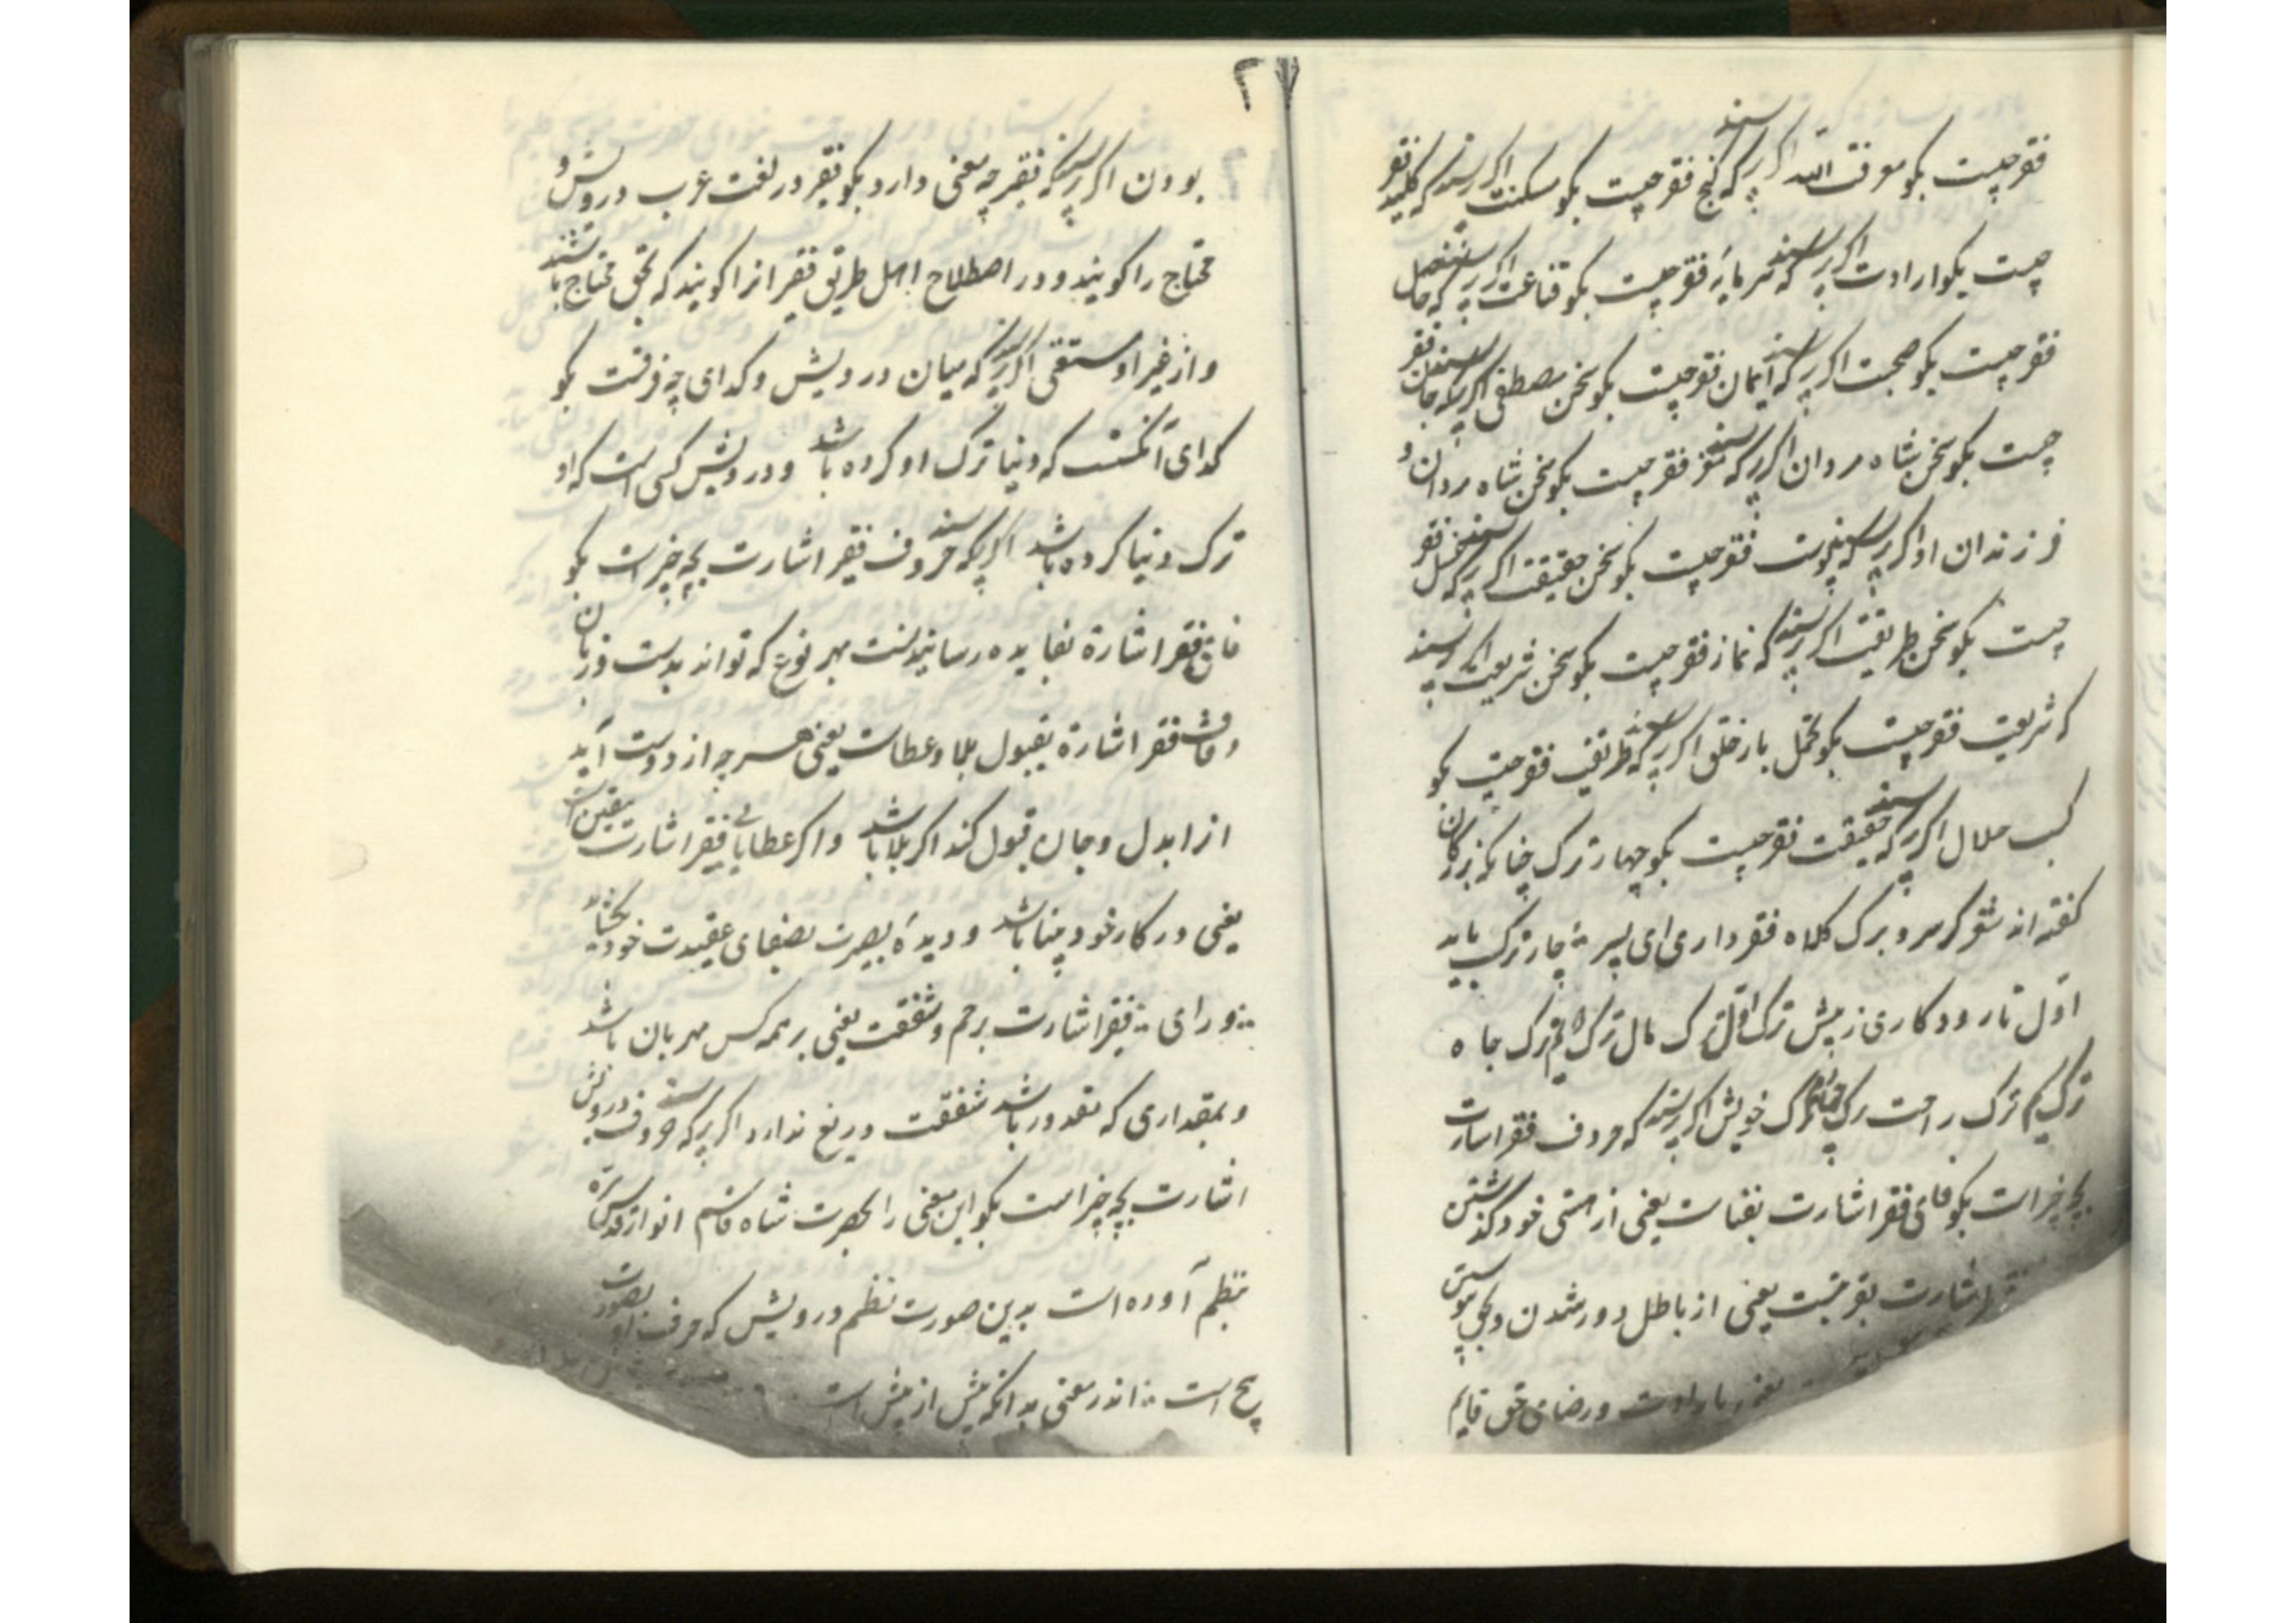 فقر چیست بکو معرفت الله اکر پرسند که کنج فقر چیست بکو مسکنت اکر پرسند که کلید فقر
چیست بکو ارادت اکر پرسند که سرمایهٔ فقر چیست بکو قناعت اکر پرسند که حاصل
فقر چیست بکو صحبت اکر پرسند که ایمان فقر چیست بکو سخن مصطفی اکر پرسند که جان فقر
چیست بکو سخن شاه مردان اکر پرسند که مغز فقر چیست بکو سخن شاه مردان و
فرزندان او اکر پرسند که پوست فقر چیست بکو سخن حقیقت اکر پرسند که غسل فقر
چیست بکو سخن طریقت اکر پرسند که نماز فقر چیست بکو سخن شریعت اکر پرسند
که شریعت فقر چیست بکو تحمل بار خلق اکر پرسند که طریقت فقر چیست بکو
کسب حلال اکر پرسند که حقیقت فقر چیست بکو چهار ترک چنانکه بزرکان
کفته اند شعر کر سر و برک کلاه فقر داری ای پسر چار ترک باید
اول تا رود کاری ز پیش ترک اول ترک مال ترک دویم ترک جاه
ترک سیم ترک راحت ترک چهارم ترک خویش اکر پرسند که حروف فقر اشارت
بچه چیز است بکو فای فقر اشارت بفناست یعنی از هستی خود کذشتن
اشارت بقربتست یعنی از باطل دور شدن و بحق پیوستن
فقر بارادت و رضای حق قایم
۲
بودن اکر پرسند که فقیر چه معنی دارد بکو فقیر در لغت عرب درویش و
محتاج را کویند و در اصطلاح اهل طریق فقیر انرا کویند که بحق محتاج باشند
و از غیر او مستغنی اکر پرسند که میان درویش و کدای چه فرقست بکو
کدای آنکسست که دنیا ترک او کرده باشد و درویش کسی است که او
ترک دنیا کرده باشد اکر پرسند که حروف فقیر اشارت بچه چیز است بکو
فای فقر اشارة بفایده رسانیدنست بهر نوع که تواند بدست و زبان
و قاف فقر اشارة بقبول بلا و عطاست یعنی هر چه از دوست آید
انرا بدل و جان قبول کند اکر بلا باشد و اکر عطا یای فقیر اشارت بیقین است
یعنی در کار خود بینا باشد و دیدهٔ بصیرت بصفای عقیدت خود بکشاید
و رای فقیر اشارت برحم و شفقت یعنی بر همه کس مهربان باشد
و بمقداری که مقدور باشد شفقت دریغ ندارد اکر پرسند که حروف درویش
اشارت بچه چیز است بکو این معنی را حضرت شاه قاسم انوار قدس سره
بنظم آورده است بدین صورت نظم درویش که حرف او بصورت
پنج است اندر معنی بدانکه بیش از پیش است